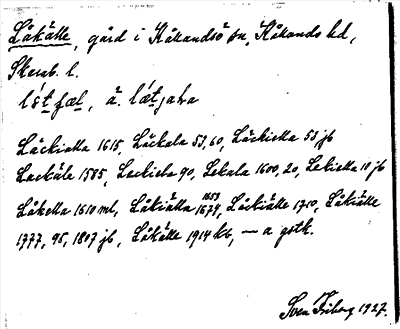 Låkälle, gård i Kållandsö sn, Kållands hd,
Skarab. l.
Läckialla 1615, Läckala 53, 60, Läckiella 53 jb
Lackäle 1585, Lackiela 90, Lekala 1600, 20, Lekiella 10 jb
Låkella 1610 ml, Låkiälla 1653 1674, Låckiälle 1710, Låkiälle
1777, 95, 1807 jb, Låkälle 1914 kb, — a gstk.
Sven Friberg 1927.